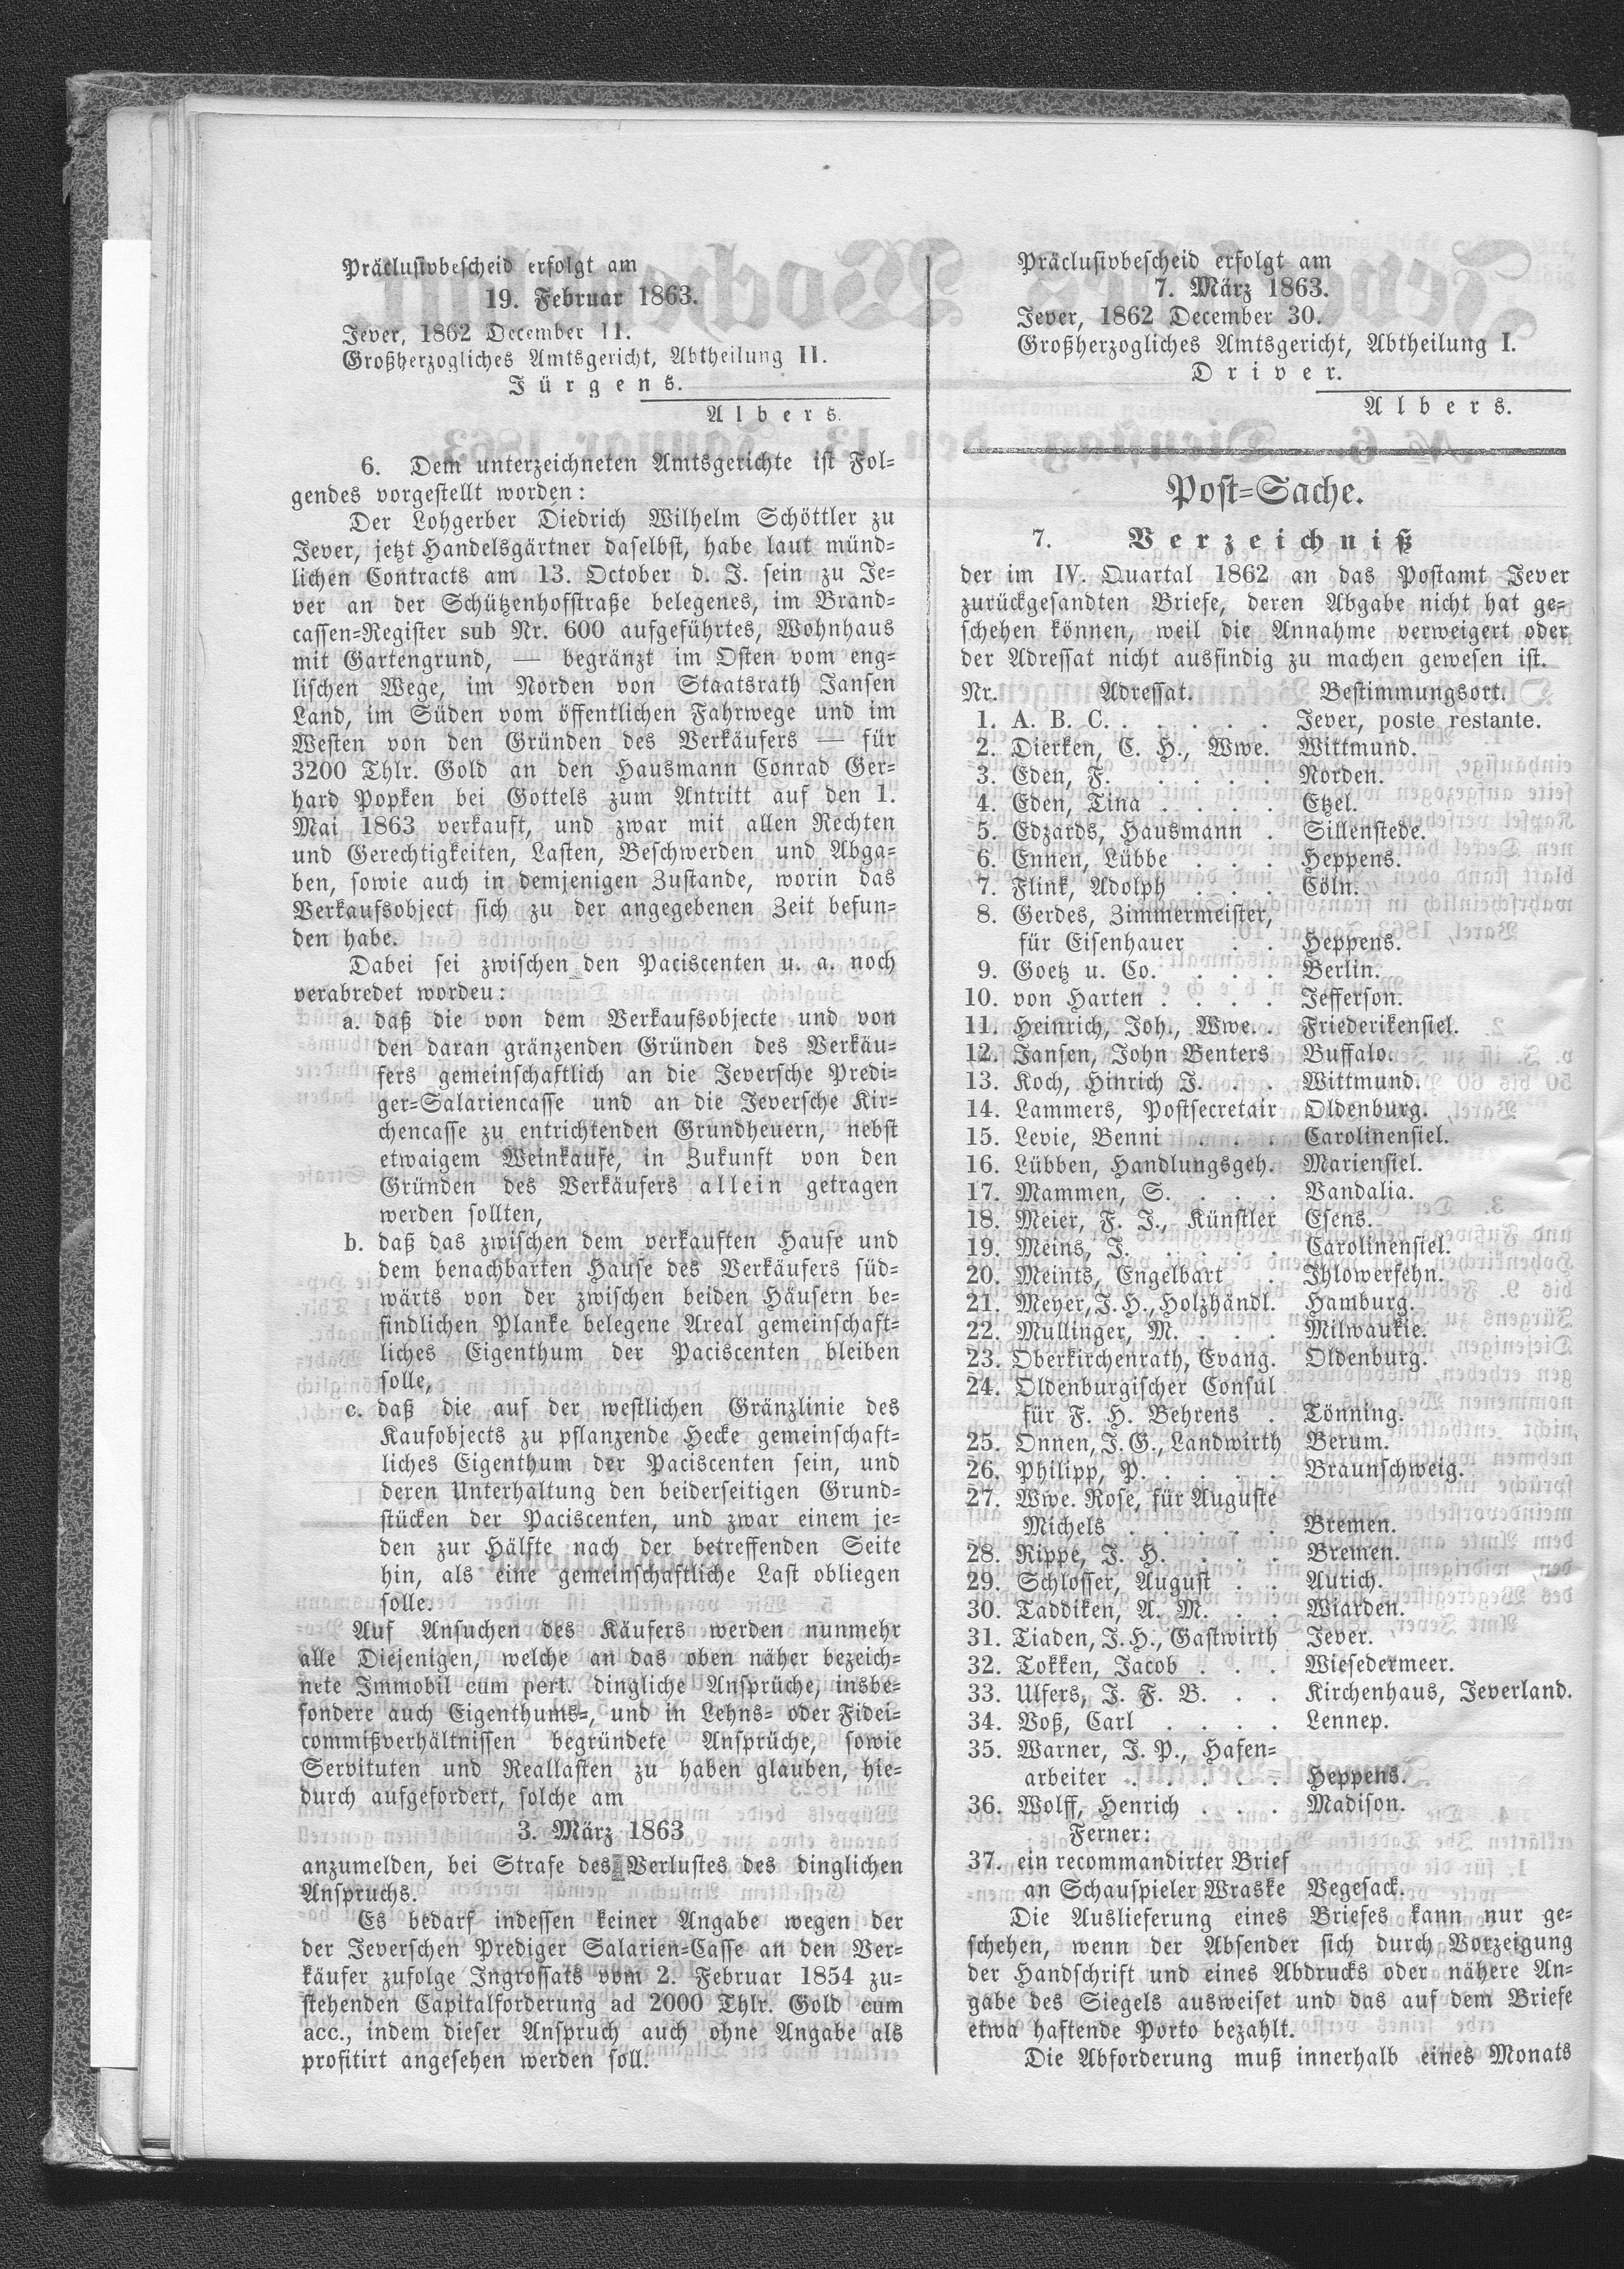 Präclusivbescheid erfolgt am
19. Februar 1863.
Jever, 1862 December 11.
Großherzogliches Amtsgericht, Abtheilung II.
Jürgens.
Albers.
6. Dem unterzeichneten Amtsgerichte ist Fol-
gendes vorgestellt worden:
Der Lohgerber Diedrich Wilhelm Schöttler zu
Jever, jetzt Handelsgärtner daselbst, habe laut münd-
lichen Contracts am 13. October d. J. sein zu Je-
ver an der Schützenhofstraße belegenes, im Brand-
cassen-Register sub Nr. 600 aufgeführtes, Wohnhaus
mit Gartengrund, — begränzt im Osten vom eng-
lischen Wege, im Norden von Staatsrath Jansen
Land, im Süden vom öffentlichen Fahrwege und im
Westen von den Gründen des Verkäufers — für
3200 Thlr. Gold an den Hausmann Conrad Ger-
hard Popken bei Gottels zum Antritt auf den 1.
Mai 1863 verkauft, und zwar mit allen Rechten
und Gerechtigkeiten, Lasten, Beschwerden und Abga-
ben, sowie auch in demjenigen Zustande, worin das
Verkaufsobject sich zu der angegebenen Zeit befun-
den habe.
Dabei sei zwischen den Paciscenten u. a. noch
verabredet wordeu:
a. daß die von dem Verkaufsobjecte und von
den daran gränzenden Gründen des Verkäu-
fers gemeinschaftlich an die Jeversche Predi-
ger-Salariencasse und an die Jeversche Kir-
chencasse zu entrichtenden Grundheuern, nebst
etwaigem Weinkaufe, in Zukunft von den
Gründen des Verkäufers allein getragen
werden sollten,
b. daß das zwischen dem verkauften Hause und
dem benachbarten Hause des Verkäufers süd-
wärts von der zwischen beiden Häusern be-
findlichen Planke belegene Areal gemeinschaft-
liches Eigenthum der Paciscenten bleiben
solle,
c. daß die auf der westlichen Gränzlinie des
Kaufobjects zu pflanzende Hecke gemeinschaft-
liches Eigenthum der Paciscenten sein, und
deren Unterhaltung den beiderseitigen Grund-
stücken der Paciscenten, und zwar einem je-
den zur Hälfte nach der betreffenden Seite
hin, als eine gemeinschaftliche Last obliegen
solle.
Auf Ansuchen des Käufers werden nunmehr
alle Diejenigen, welche an das oben näher bezeich-
nete Immobil cum pert. dingliche Ansprüche, insbe-
sondere auch Eigenthums-, und in Lehns- oder Fidei-
commißverhältnissen begründete Ansprüche, sowie
Servituten und Reallasten zu haben glauben, hie-
durch aufgefordert, solche am
3. März 1863
anzumelden, bei Strafe des Verlustes des dinglichen
Anspruchs.
Es bedarf indessen keiner Angabe wegen der
der Jeverschen Prediger Salarien-Casse an den Ver-
käufer zufolge Ingrossats vom 2. Februar 1854 zu-
stehenden Capitalforderung ad 2000 Thlr. Gold cum
acc., indem dieser Anspruch auch ohne Angabe als
profitirt angesehen werden soll.
Präclusivbescheid erfolgt am
7. März 1863.
Jever, 1862 December 30.
Großherzogliches Amtsgericht, Abtheilung I.
Driver.
Albers.
Post-Sache.
7. Verzeichniß
der im IV. Quartal 1862 an das Postamt Jever
zurückgesandten Briefe, deren Abgabe nicht hat ge-
schehen können, weil die Annahme verweigert oder
der Adressat nicht ausfindig zu machen gewesen ist.
Nr. Adressat. Bestimmungsort.
1. A. B. C. . . . . . . Jever, poste restante.
2. Dierken, C. H., Wwe. Wittmund.
3. Eden, F. . . . . . Norden.
4. Eden, Tina . . . . Etzel.
5. Edzards, Hausmann . Sillenstede.
6. Ennen, Lübbe . . . Heppens.
7. Flink, Adolph . . . Cöln.
8. Gerdes, Zimmermeister,
für Eisenhauer . . Heppens.
9. Goetz u. Co. . . . . Berlin.
10. von Harten . . . . Jefferson.
11. Heinrich, Joh., Wwe. . Friederikensiel.
12. Jansen, John Benters Buffalo.
13. Koch, Hinrich J. . . . Wittmund.
14. Lammers, Postsecretair Oldenburg.
15. Levie, Benni . . . Carolinensiel.
16. Lübben, Handlungsgeh. Mariensiel.
17. Mammen, S. . . . . Vandalia.
18. Meier, F. J., Künstler Esens.
19. Meins, J. . . . . . Carolinensiel.
20. Meints, Engelbart . Ihlowerfehn.
21. Meyer, J. H., Holzhändl. Hamburg.
22. Müllinger, M. . . . Milwaukie.
23. Oberkirchenrath, Evang. Oldenburg.
24. Oldenburgischer Consul
für F. H. Behrens . Tönning.
25. Onnen, J. G., Landwirth Berum.
26. Philipp, P. . . . . . Braunschweig.
27. Wwe. Rose, für Auguste
Michels . . . . . Bremen.
28. Rippe, J. H. . . . . Bremen.
29. Schlosser, August . . Aurich.
30. Taddiken, A. M. . . Wiarden.
31. Tiaden, J. H., Gastwirth Jever.
32. Tokken, Jacob . . . Wiesedermeer.
33. Ulfers, J. F. B. . . Kirchenhaus, Jeverland.
34. Voß, Carl . . . . Lennep.
35. Warner, J. P., Hafen-
arbeiter . . . . . Heppens.
36. Wolff, Henrich . . . Madison.
Ferner:
37. ein recommandirter Brief
an Schauspieler Wraske Vegesack.
Die Auslieferung eines Briefes kann nur ge-
schehen, wenn der Absender sich durch Vorzeigung
der Handschrift und eines Abdrucks oder nähere An-
gabe des Siegels ausweiset und das auf dem Briefe
etwa haftende Porto bezahlt.
Die Abforderung muß innerhalb eines Monats